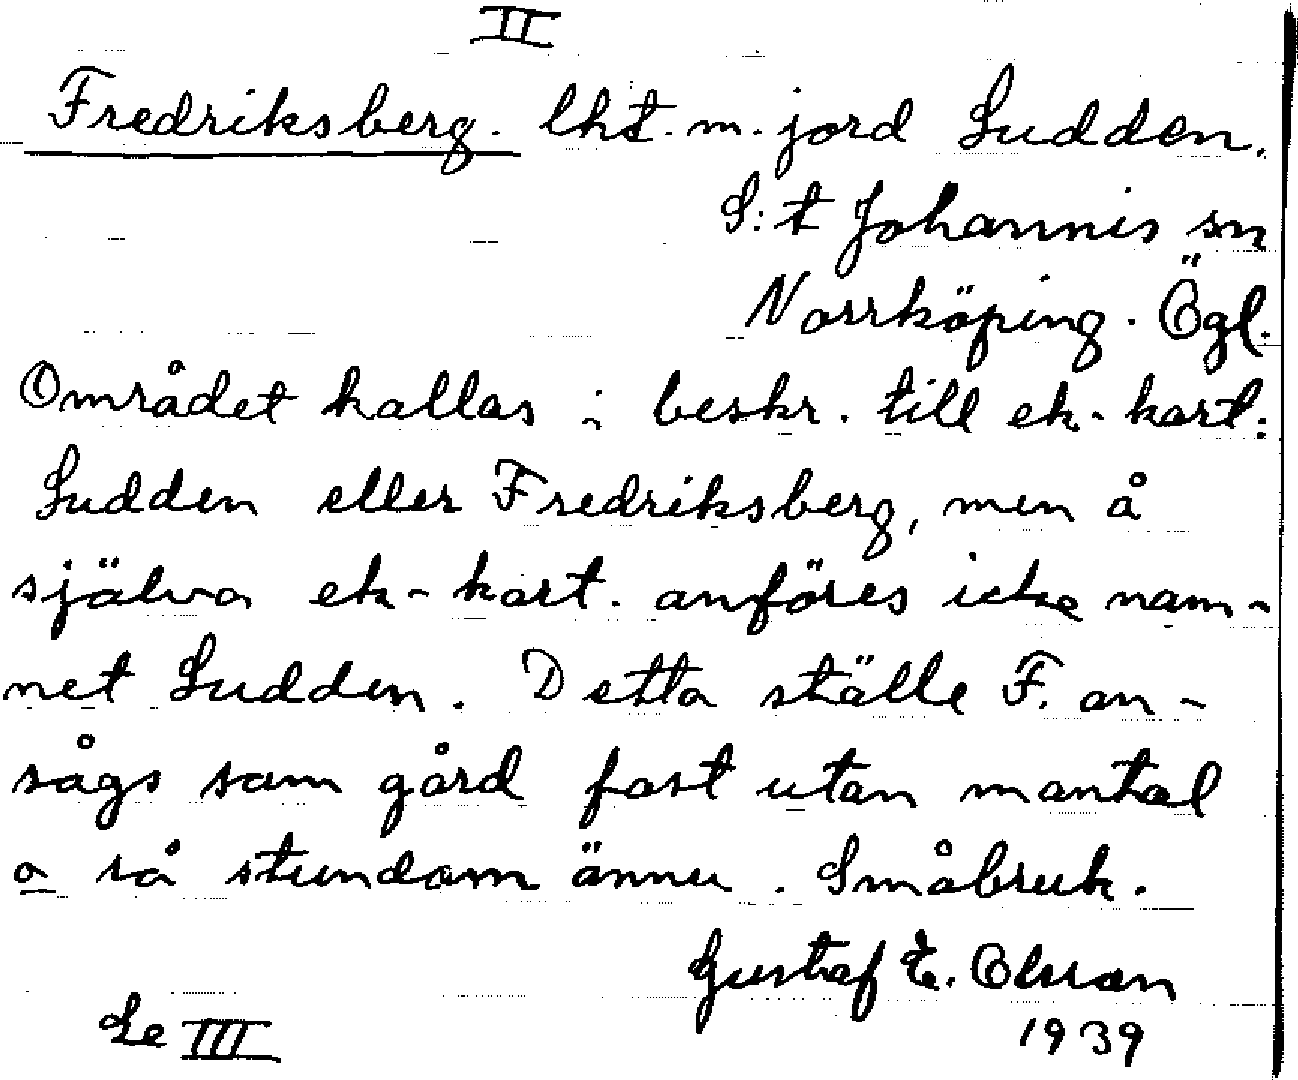 II
Fredriksberg. lht. m. jord Sudden.
S:t Johannis sn
Norrköping. Ögl.
Området kallas i beskr. till ek-kart:
Sudden eller Fredriksberg, men å
själva ek-kart. anföres icke nam-
net Sudden. Detta ställe F. an-
sågs som gård fast utan mantal
o så stundom ännu. Småbruk.
Gustaf E. Olsson
Se III
1939